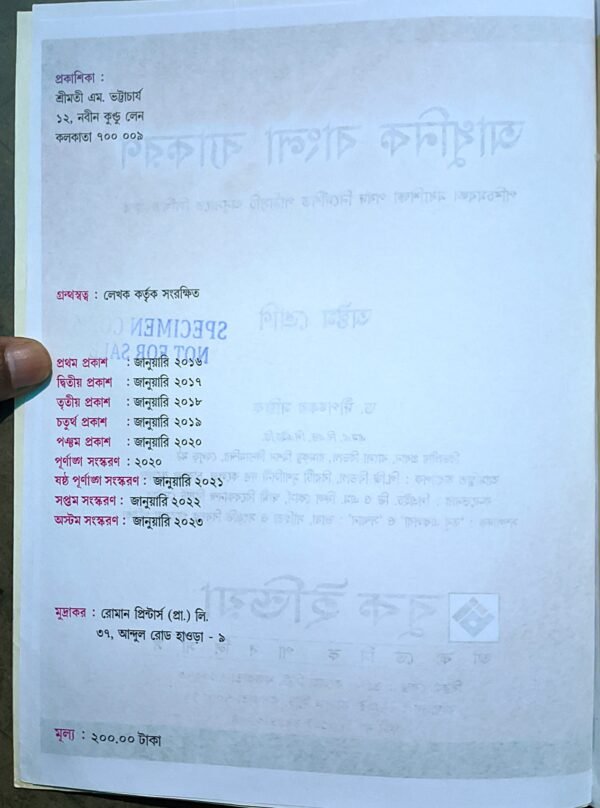 প্রকাশিকা :
শ্রীমতী এম. ভট্টাচার্য
১২, নবীন কুন্ডু লেন
কলকাতা ৭০০ ০০৯
গ্রন্থস্বত্ব : লেখক কর্তৃক সংরক্ষিত
SPECIMEN
NOT FOR
প্রথম প্রকাশ : জানুয়ারি ২০১৬
দ্বিতীয় প্রকাশ : জানুয়ারি ২০১৭
তৃতীয় প্রকাশ : জানুয়ারি ২০১৮
চতুর্থ প্রকাশ : জানুয়ারি ২০১৯
পঞ্চম প্রকাশ : জানুয়ারি ২০২০
পূর্ণাঙ্গ সংস্করণ : ২০২০
ষষ্ঠ পূর্ণাঙ্গ সংস্করণ : জানুয়ারি ২০২১
সপ্তম সংস্করণ : জানুয়ারি ২০২২
অস্টম সংস্করণ : জানুয়ারি ২০২৩
মুদ্রাকর : রোমান প্রিন্টার্স (প্রা.) লি.
৩৭, আন্দুল রোড হাওড়া - ৯
মূল্য : ২০০.০০ টাকা